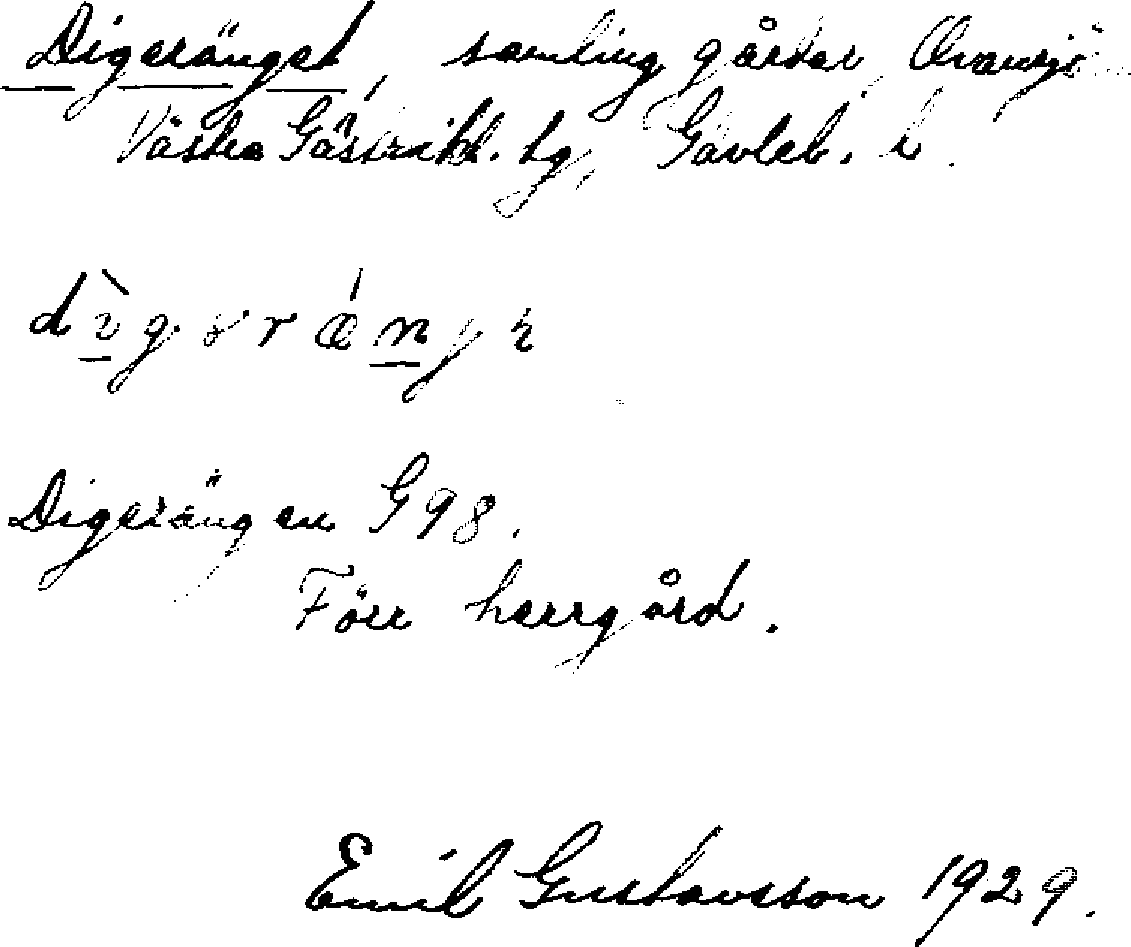 Digeränget, samling gårdar, Ovansjö
Västra Gästrikl. tg, Gävleb. l.
Digerängen G98.
Förr herrgård.
Emil Gustavsson 1929.